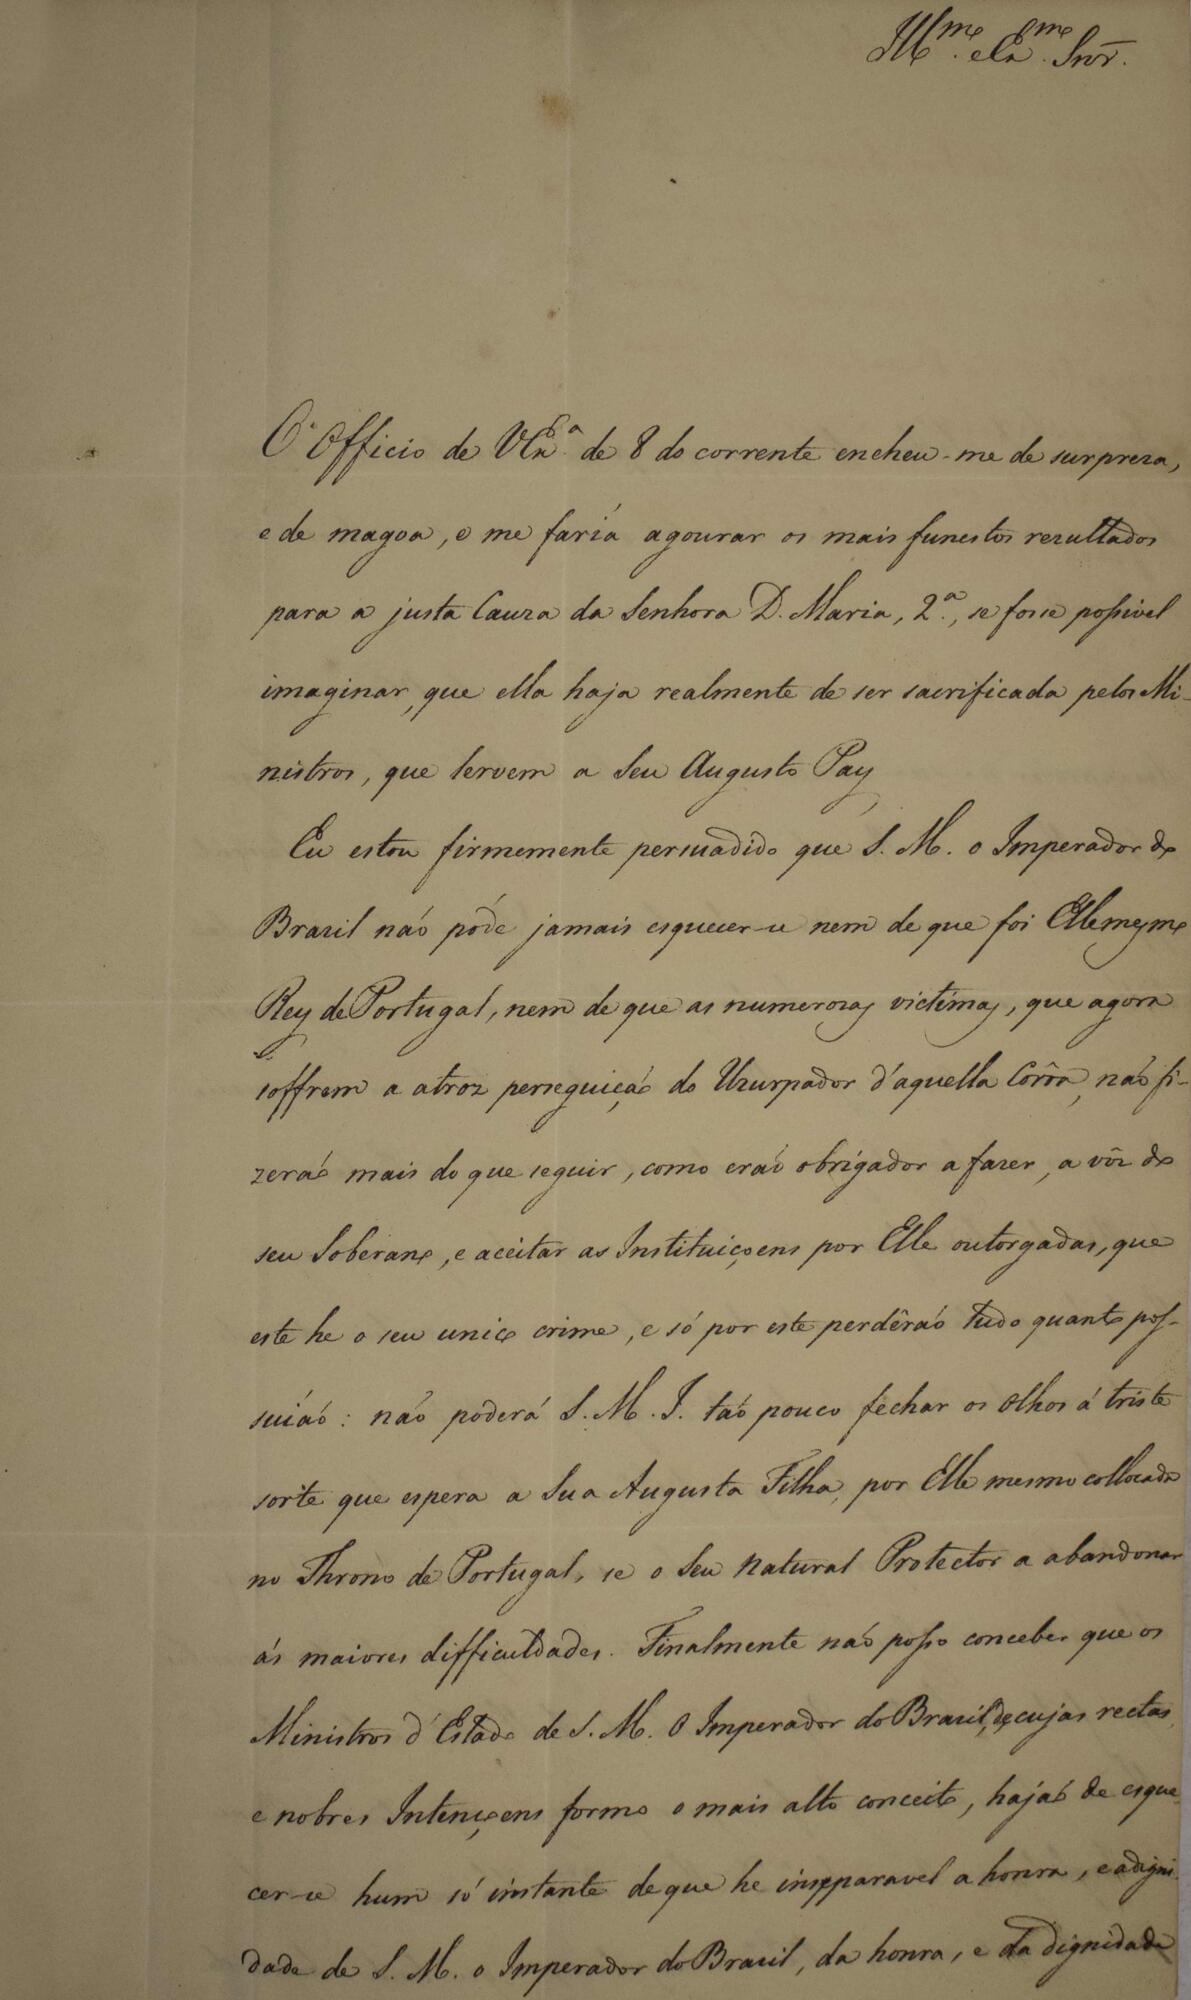 Illmo. e Exmo. Snr.
O Officio de VExa. de 8 do corrente encheu-me de surpreza,
e de magoa, e me faria agourar os mais funestos rezultados
para a justa Cauza da Senhora D. Maria, 2.a, se fosse possivel
imaginar, que ella haja realmente de ser sacrificada pelos Mi-
nistros, que servem a Seu Augusto Pay
Eu estou firmemente persuadido que S. M. o Imperador do
Brazil não póde jamais esquecer-se nem de que foi Elle mesmo
Rey de Portugal, nem de que as numerozas victimas, que agora
soffrem a atroz perseguição do Uzurpador d'aquella Corôa, não fi-
zerão mais do que seguir, como erão obrigados a fazer, a vôz do
seu Soberano, e aceitar as Instituiçoens por Elle outorgadas, que
este he o seu unico crime, e só por este perdêrão tudo quanto pos-
suião: não poderá S. M. I. tão pouco fechar os olhos á triste
sorte que espera a Sua Augusta Filha, por Elle mesmo collocada
no Throno de Portugal, se o Seu Natural Protector a abandonar
ás maiores difficuldades. Finalmente não posso conceber que os
Ministros d'Estado de S. M. O Imperador do Brazil, de cujas rectas,
e nobres Intençoens formo o mais alto conceito, hajão de esque-
cer-se hum só instante de que he inseparavel a honra, e a digni-
dade de S. M. o Imperador do Brazil, da honra, e da dignidade